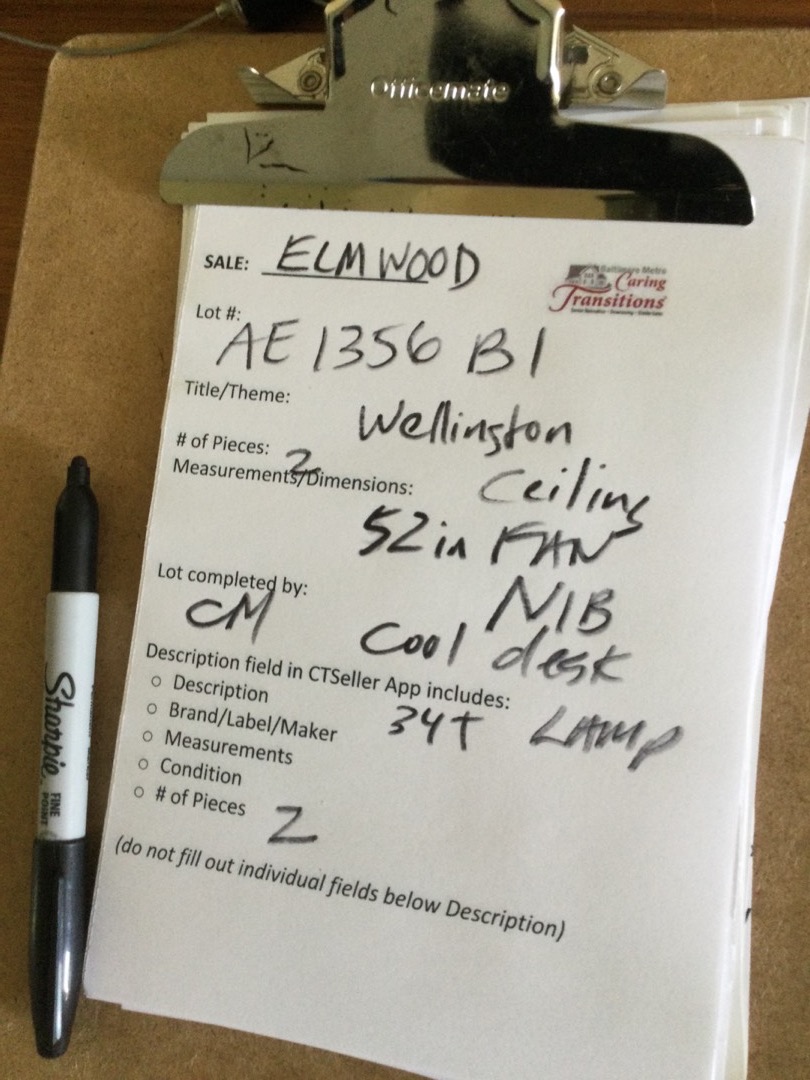 Officemate
SALE: ELMWOOD
Baltimore Metro
Caring
Transitions
Lot #:
AE 1356 B1
Title/Theme:
Wellington
# of Pieces: 2
Ceiling
Measurements/Dimensions:
52in FAN
NIB
Lot completed by:
CM
Cool desk
Description field in CTSeller App includes:
34T LAMP
○ Description
○ Brand/Label/Maker
○ Measurements
○ Condition
○ # of Pieces 2
(do not fill out individual fields below Description)
Sharpie
FINE
POINT